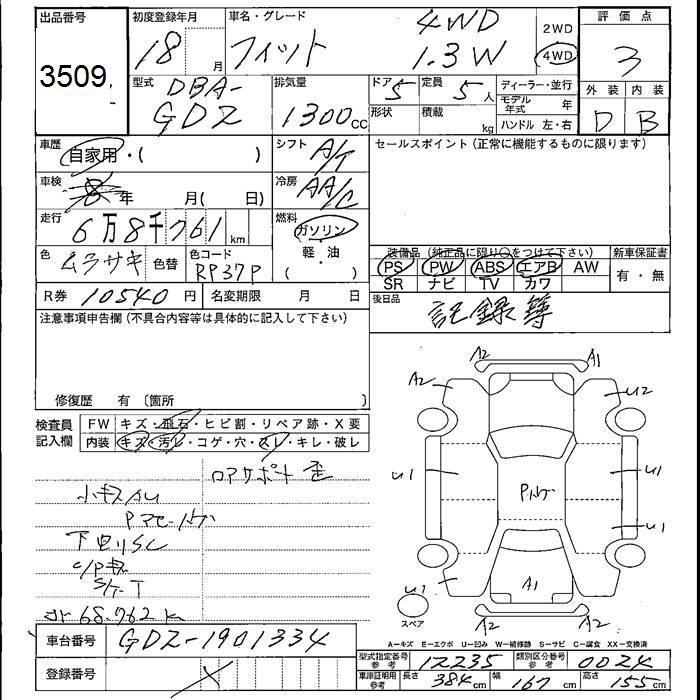 出品番号
3509
初度登録年月
18 月
車名・グレード
フィット 4WD 1.3W
2WD
4WD
評価点
3
型式
DBA-
GDZ
排気量
1300 cc
ドア 5
定員 5 人
形状
積載 kg
ディーラー・並行
モデル年式 年
ハンドル 左・右
外装 内装
D B
車歴
自家用・( )
シフト A/T
セールスポイント(正常に機能するものに限ります)
車検
8 年 月( 日)
冷房 AA/C
走行
6万8千761 km
燃料
ガソリン
軽・油
( )
色 ムラサキ
色替
色コード
RP37P
装備品(純正品に限り○をつけて下さい)
新車保証書
PS PW ABS エアB AW
SR ナビ TV カワ
有・無
R券 10540 円
名変期限 月 日
後日品
記録簿
注意事項申告欄(不具合内容等は具体的に記入して下さい)
修復歴 有〔箇所 〕
検査員記入欄
FW キズ・飛石・ヒビ割・リペア跡・X要
内装 キズ・汚レ・コゲ・穴・スレ・キレ・破レ
ロアサポート 歪
小キズ
下回リSC
S/T-T
メーター 68.762 k
A2 A1
A2 U2
U1 U1
U1
U1
A1
A2 A2
スペア
A-キズ E-エクボ U-凹ミ W-補修跡 S-サビ C-腐食 XX-交換済
車台番号 GDZ-1901334
登録番号
型式指定番号 参考 12235
類別区分番号 参考 0024
車庫証明用 参考 長さ 384 cm 幅 167 cm 高さ 155 cm